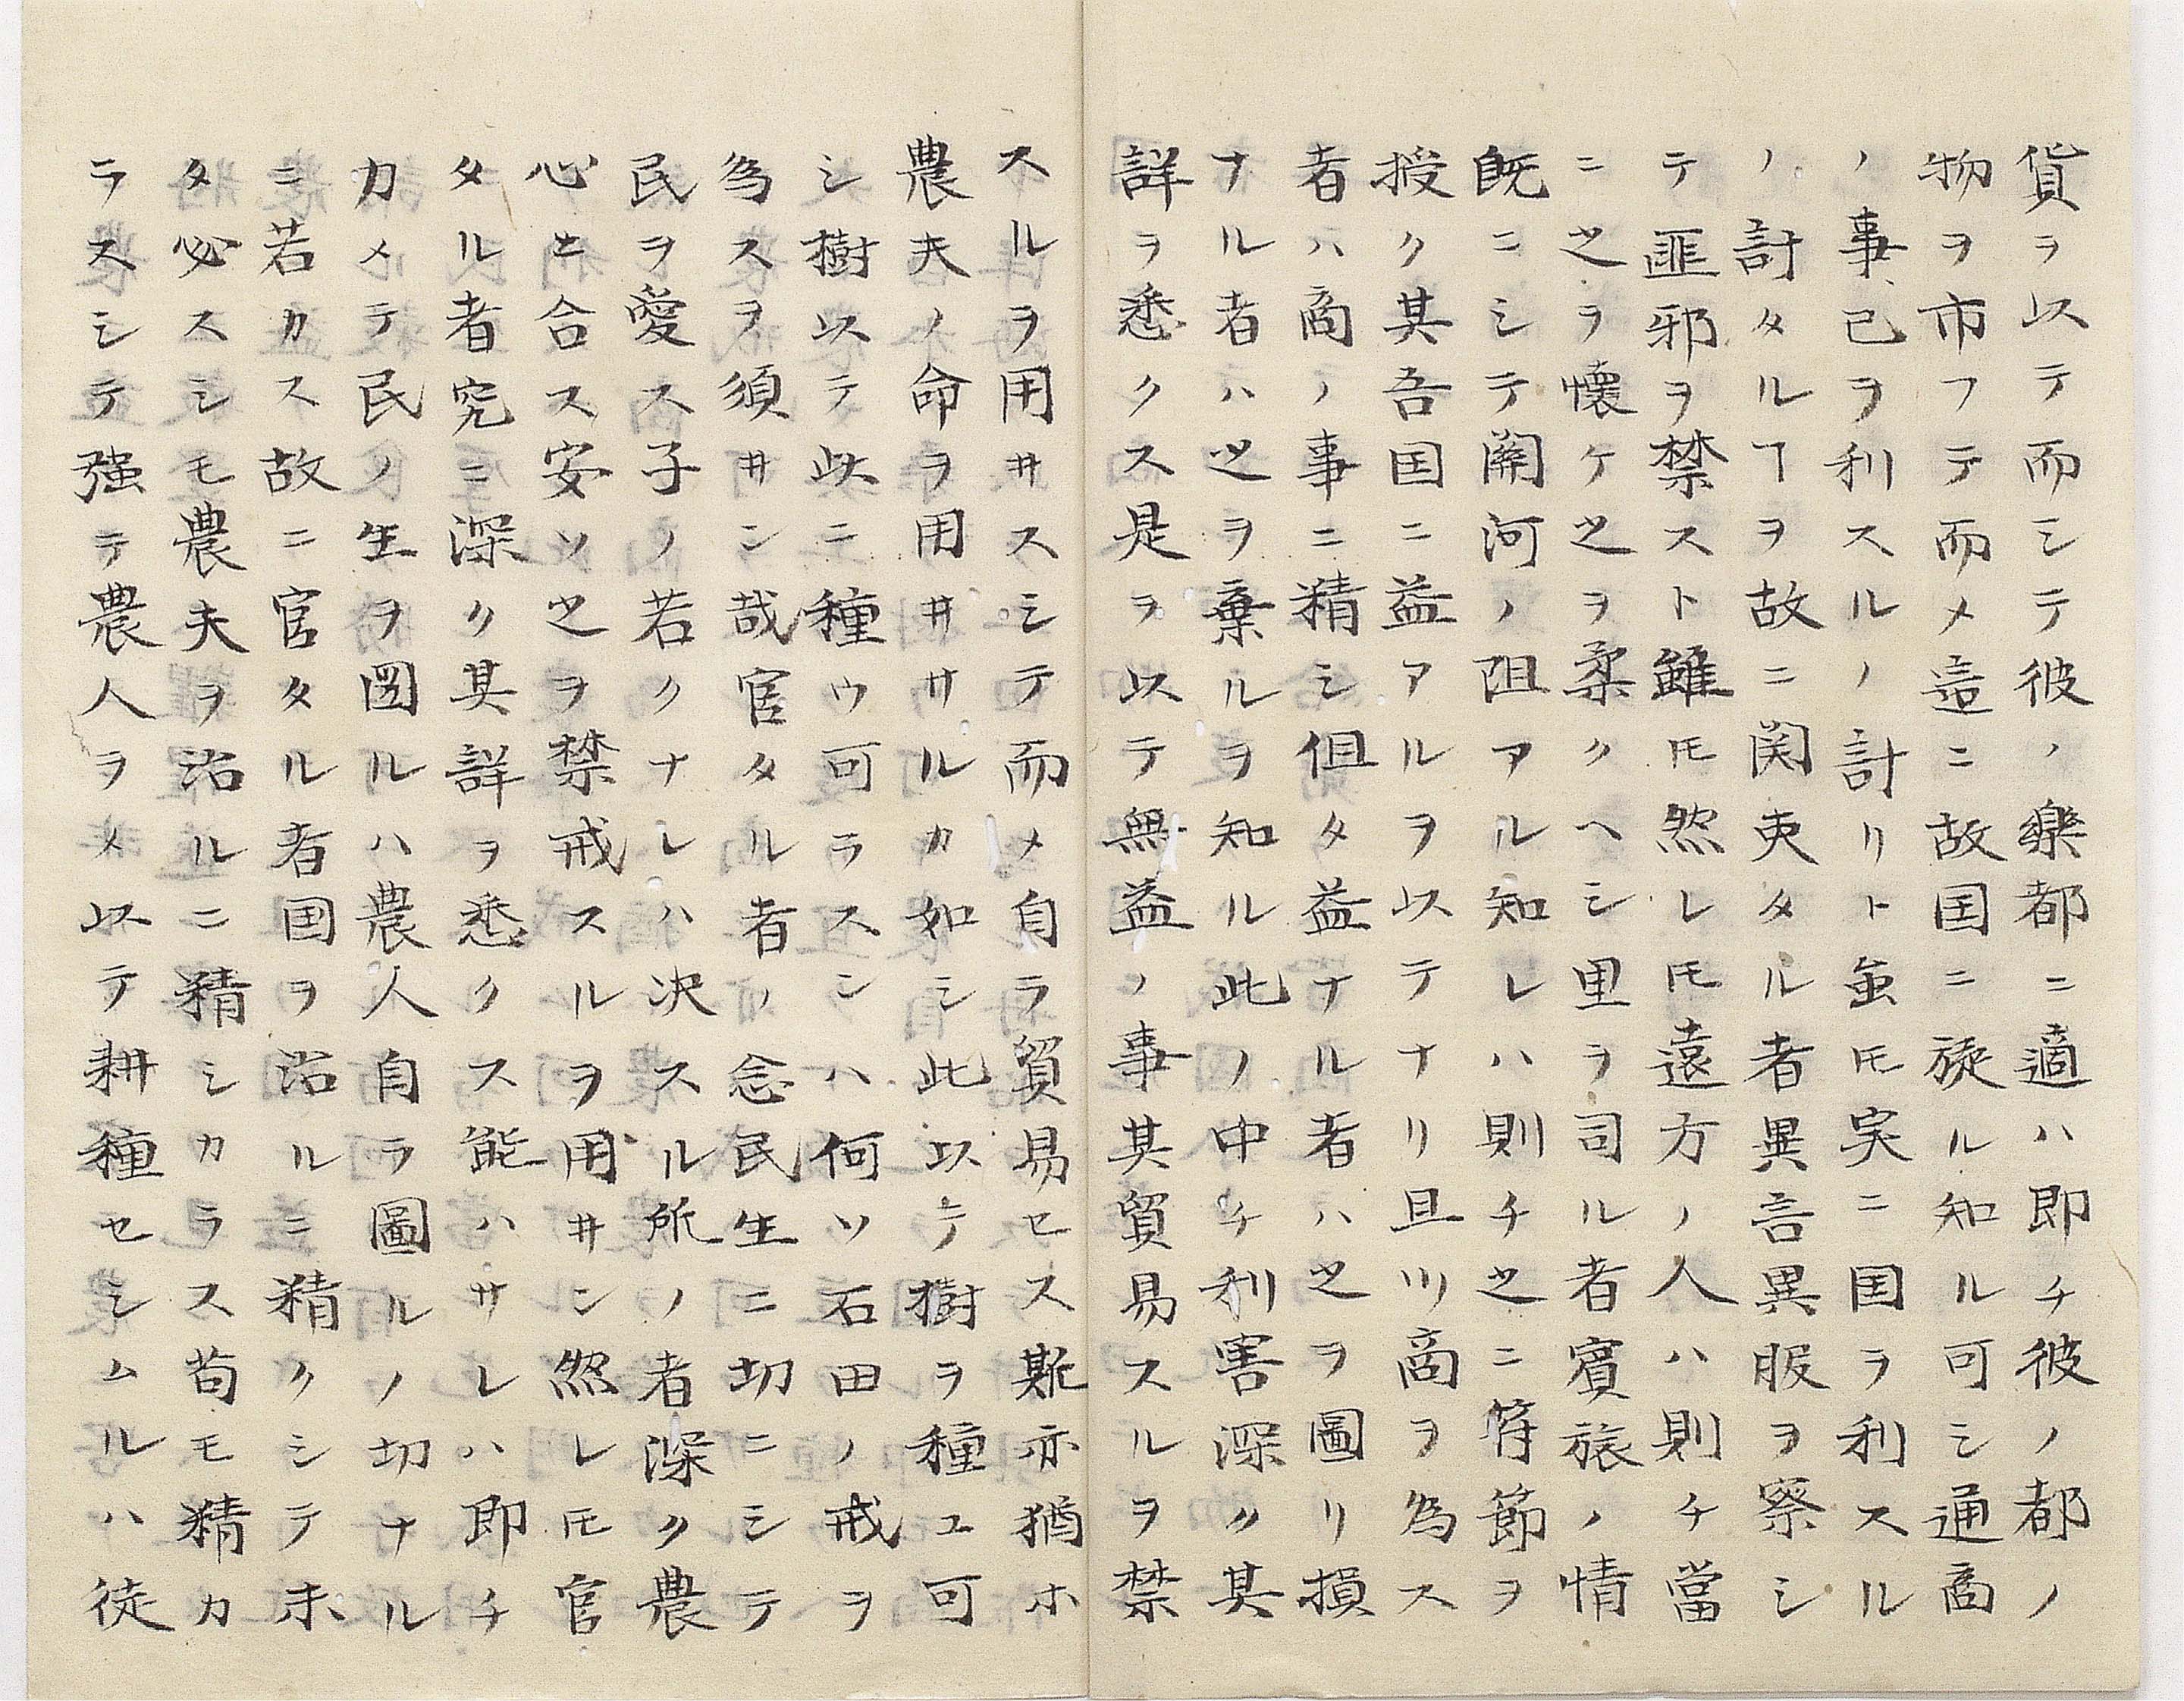 貨ヲ以テ而シテ彼ノ樂都ニ適ハ即チ彼ノ都ノ
物ヲ市フテ而メ這ニ故国ニ旋ル知ル可シ通商
ノ事己ヲ利スルノ計リト虽𪜈実ニ国ヲ利スル
ノ計タルヿヲ故ニ関吏タル者異言異服ヲ察シ
テ匪邪ヲ禁スト雖𪜈然レ𪜈遠方ノ人ハ則チ當
ニ之ヲ懐ケ之ヲ柔クヘシ里ヲ司ル者賓旅ノ情
既ニシテ関河ノ阻アル知レハ則チ之ニ符節ヲ
授ク其吾国ニ益アルヲ以テナリ且ツ商ヲ為ス
者ハ商ノ事ニ精シ但タ益ナル者ハ之ヲ圖リ損
ナル者ハ之ヲ棄ルヲ知ル此ノ中チ利害深ク其
詳ヲ悉クス是ヲ以テ無益ノ事其貿易スルヲ禁
スルヲ用井スシテ而メ自ラ貿易セス斯亦猶ホ
農夫ノ命ヲ用井サルカ如シ此以テ樹ヲ種ユ可
シ樹以テ此ニ種ウ可ラスンハ何ソ石田ノ戒ヲ
為スヲ須井ン哉官タル者ノ念民生ニ切ニシテ
民ヲ愛ス子ノ若クナレハ决スル所ノ者深ク農
心ト合ス安ソ之ヲ禁戒スルヲ用井ン然レ𪜈官
タル者究ニ深ク其詳ヲ悉クス能ハサレハ即チ
カメテ民ノ生ヲ圖ルハ農人自ラ圖ルノ切ナル
ニ若カス故ニ官タル者国ヲ治ルニ精クシテ未
タ必スシモ農夫ヲ治ルニ精シカラス苟モ精カ
ラスシテ强テ農人ヲメ以テ耕種セシムルハ徒